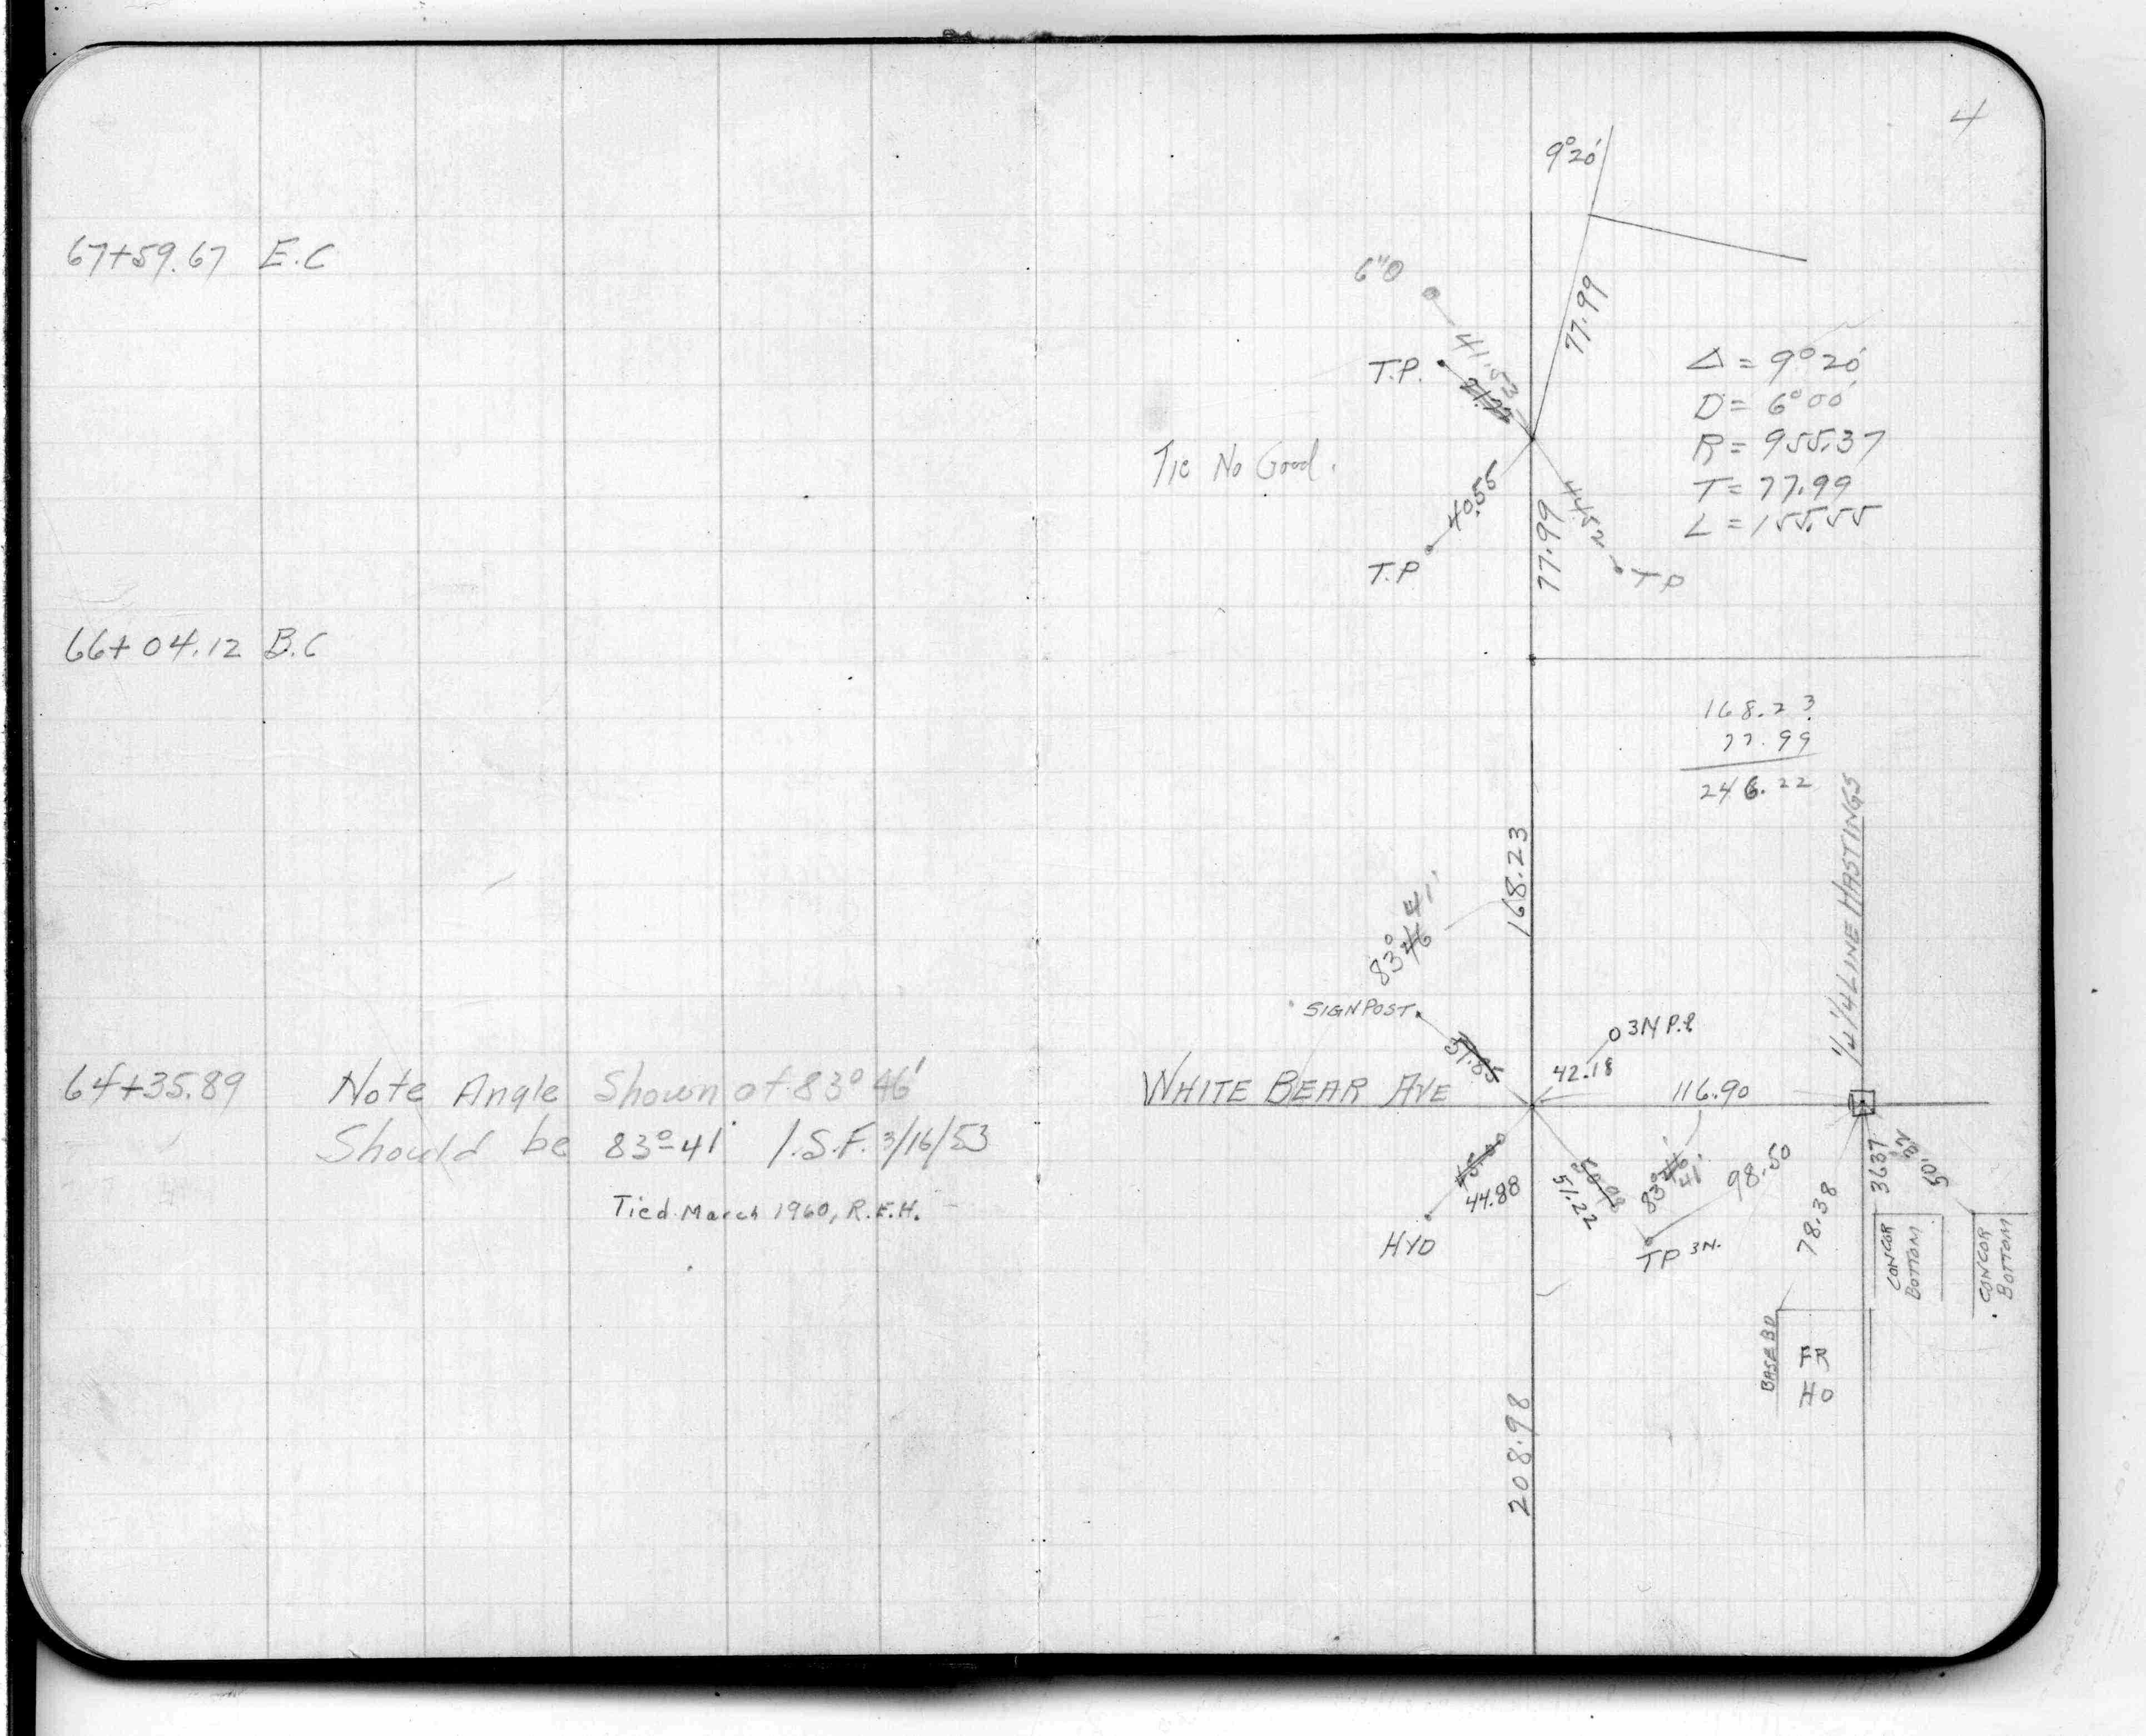 4
67+59.67 E.C
66+04.12 B.C
64+35.89 Note Angle Shown at 83° 46'
Should be 83°-41' I.S.F. 3/16/53
Tied March 1960, R.E.H.
9°20'
6"O
41.93
T.P.
77.99
Δ = 9°20'
D = 6°00'
R = 955.37
T = 77.99
L = 155.55
Tie No Good.
40.56
T.P
77.99
44.52
T P
168.23
77.99
246.22
168.23
83° 46 41'
SIGN POST
51.85
3N P.P.
42.18
WHITE BEAR AVE
116.90
1/2 1/4 LINE HASTINGS
45.00
44.88
HYD
50.98
51.22
83° 46' 41'
98.50
TP 3N.
78.38
36.37
50.
CONCOR
BOTTOM
CONCOR
BOTTOM
BASE BD
FR
HO
208.98